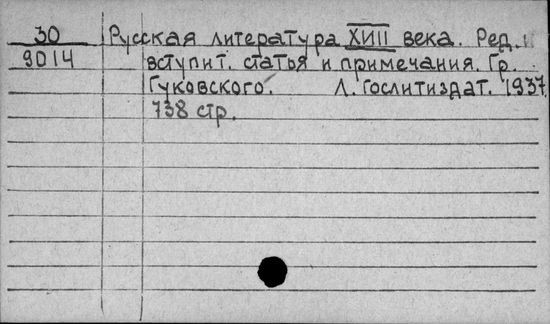 30 Русская литература XIII века. Ред. и
9014 вступит. статья и примечания. Гр.
Гуковского. Л. Гослитиздат. 1937
738 стр.